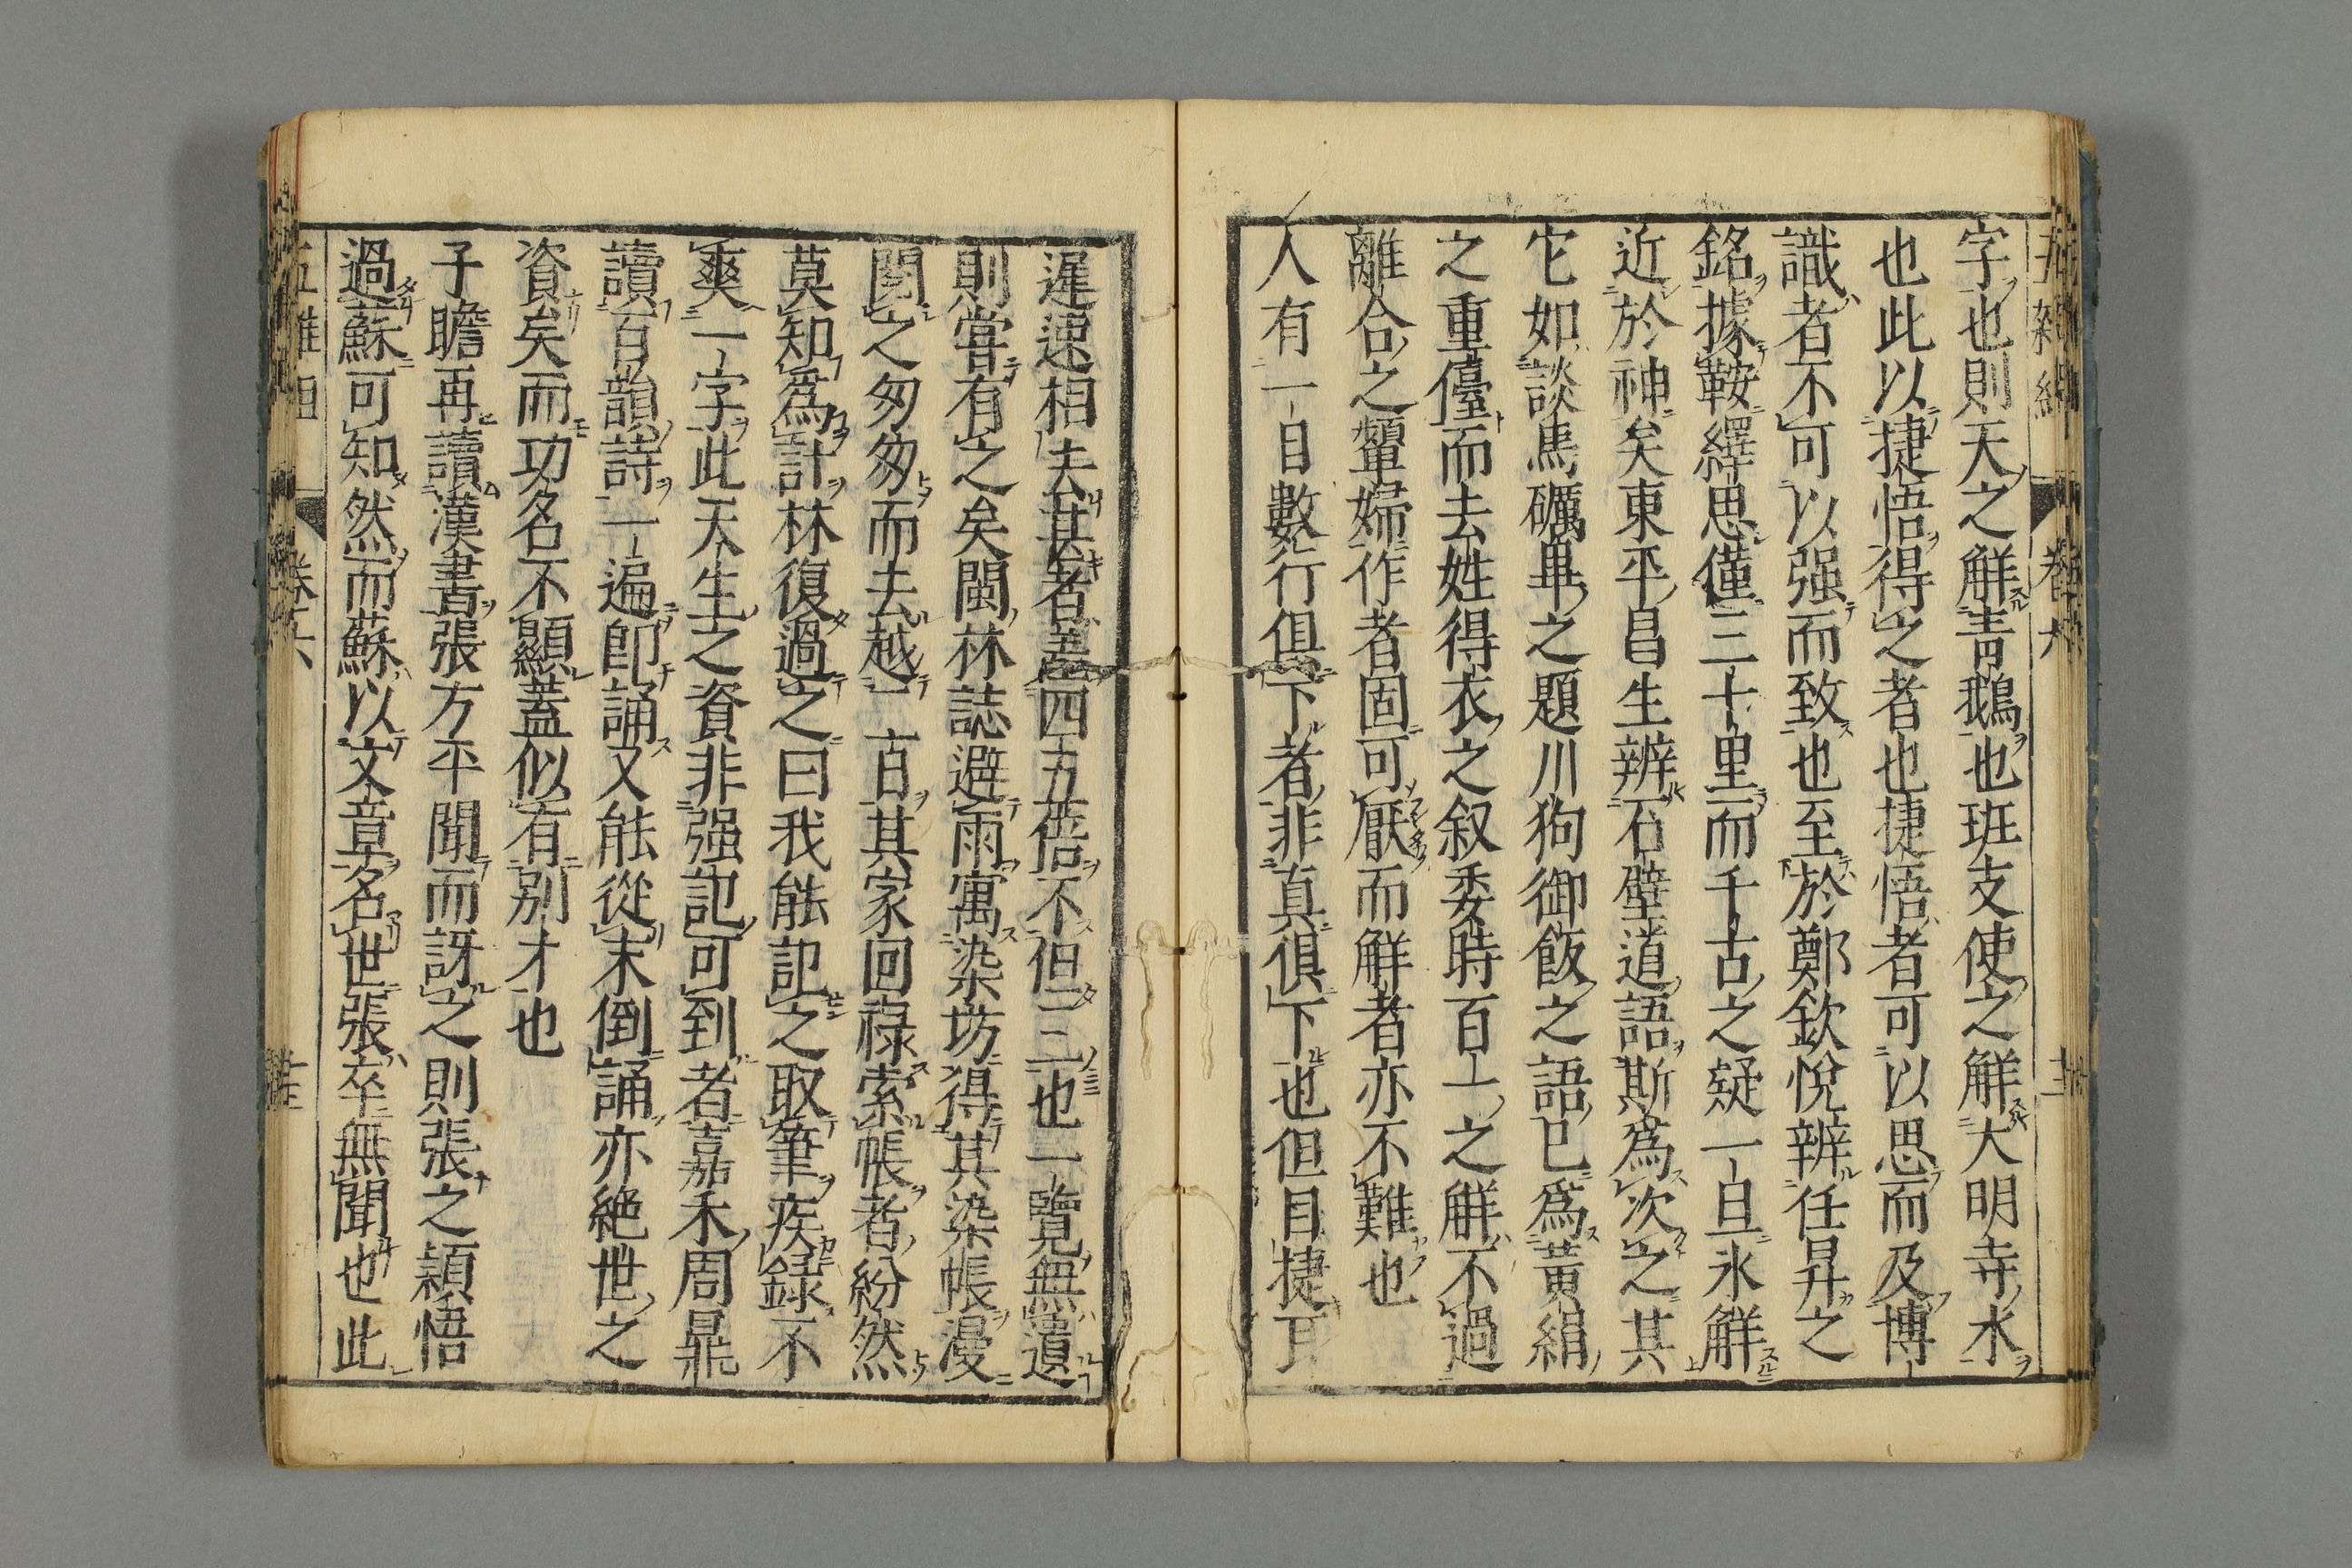 字也則天之解青鵝也班支使之解大明寺水
也此以捷悟得之者也捷悟者可以思而及博
識者不可以强而致也至於鄭欽悅辨任昇之
銘據鞍繹思僅三十里而千古之疑一旦氷解
近於神矣東平昌生辨石壁道語斯爲次之其
它如談馬礪畢之題川狗御飯之語已爲黃絹
之重儓而去姓得衣之叙委時百一之解不過
離合之顰婦作者固可厭而解者亦不難也
人有一目數行俱下者非真俱下也但目捷耳
遲速相去甚者蓋四五蓓不但三也一覽無遺
則嘗有之矣閩林誌避雨寓染坊得其染帳漫
閱之匆匆而去越一百其家回祿索帳者紛然
莫知爲計林復過之曰我能記之取筆疾錄不
爽一字此天生之資非强記可到者嘉禾周鼎
讀百韻詩一遍卽誦又能從末倒誦亦絕世之
資矣而功名不顯蓋似有別才也
子瞻再讀漢書張方平聞而訝之則張之穎悟
過蘇可知然而蘇以文章名世張卒無聞也此